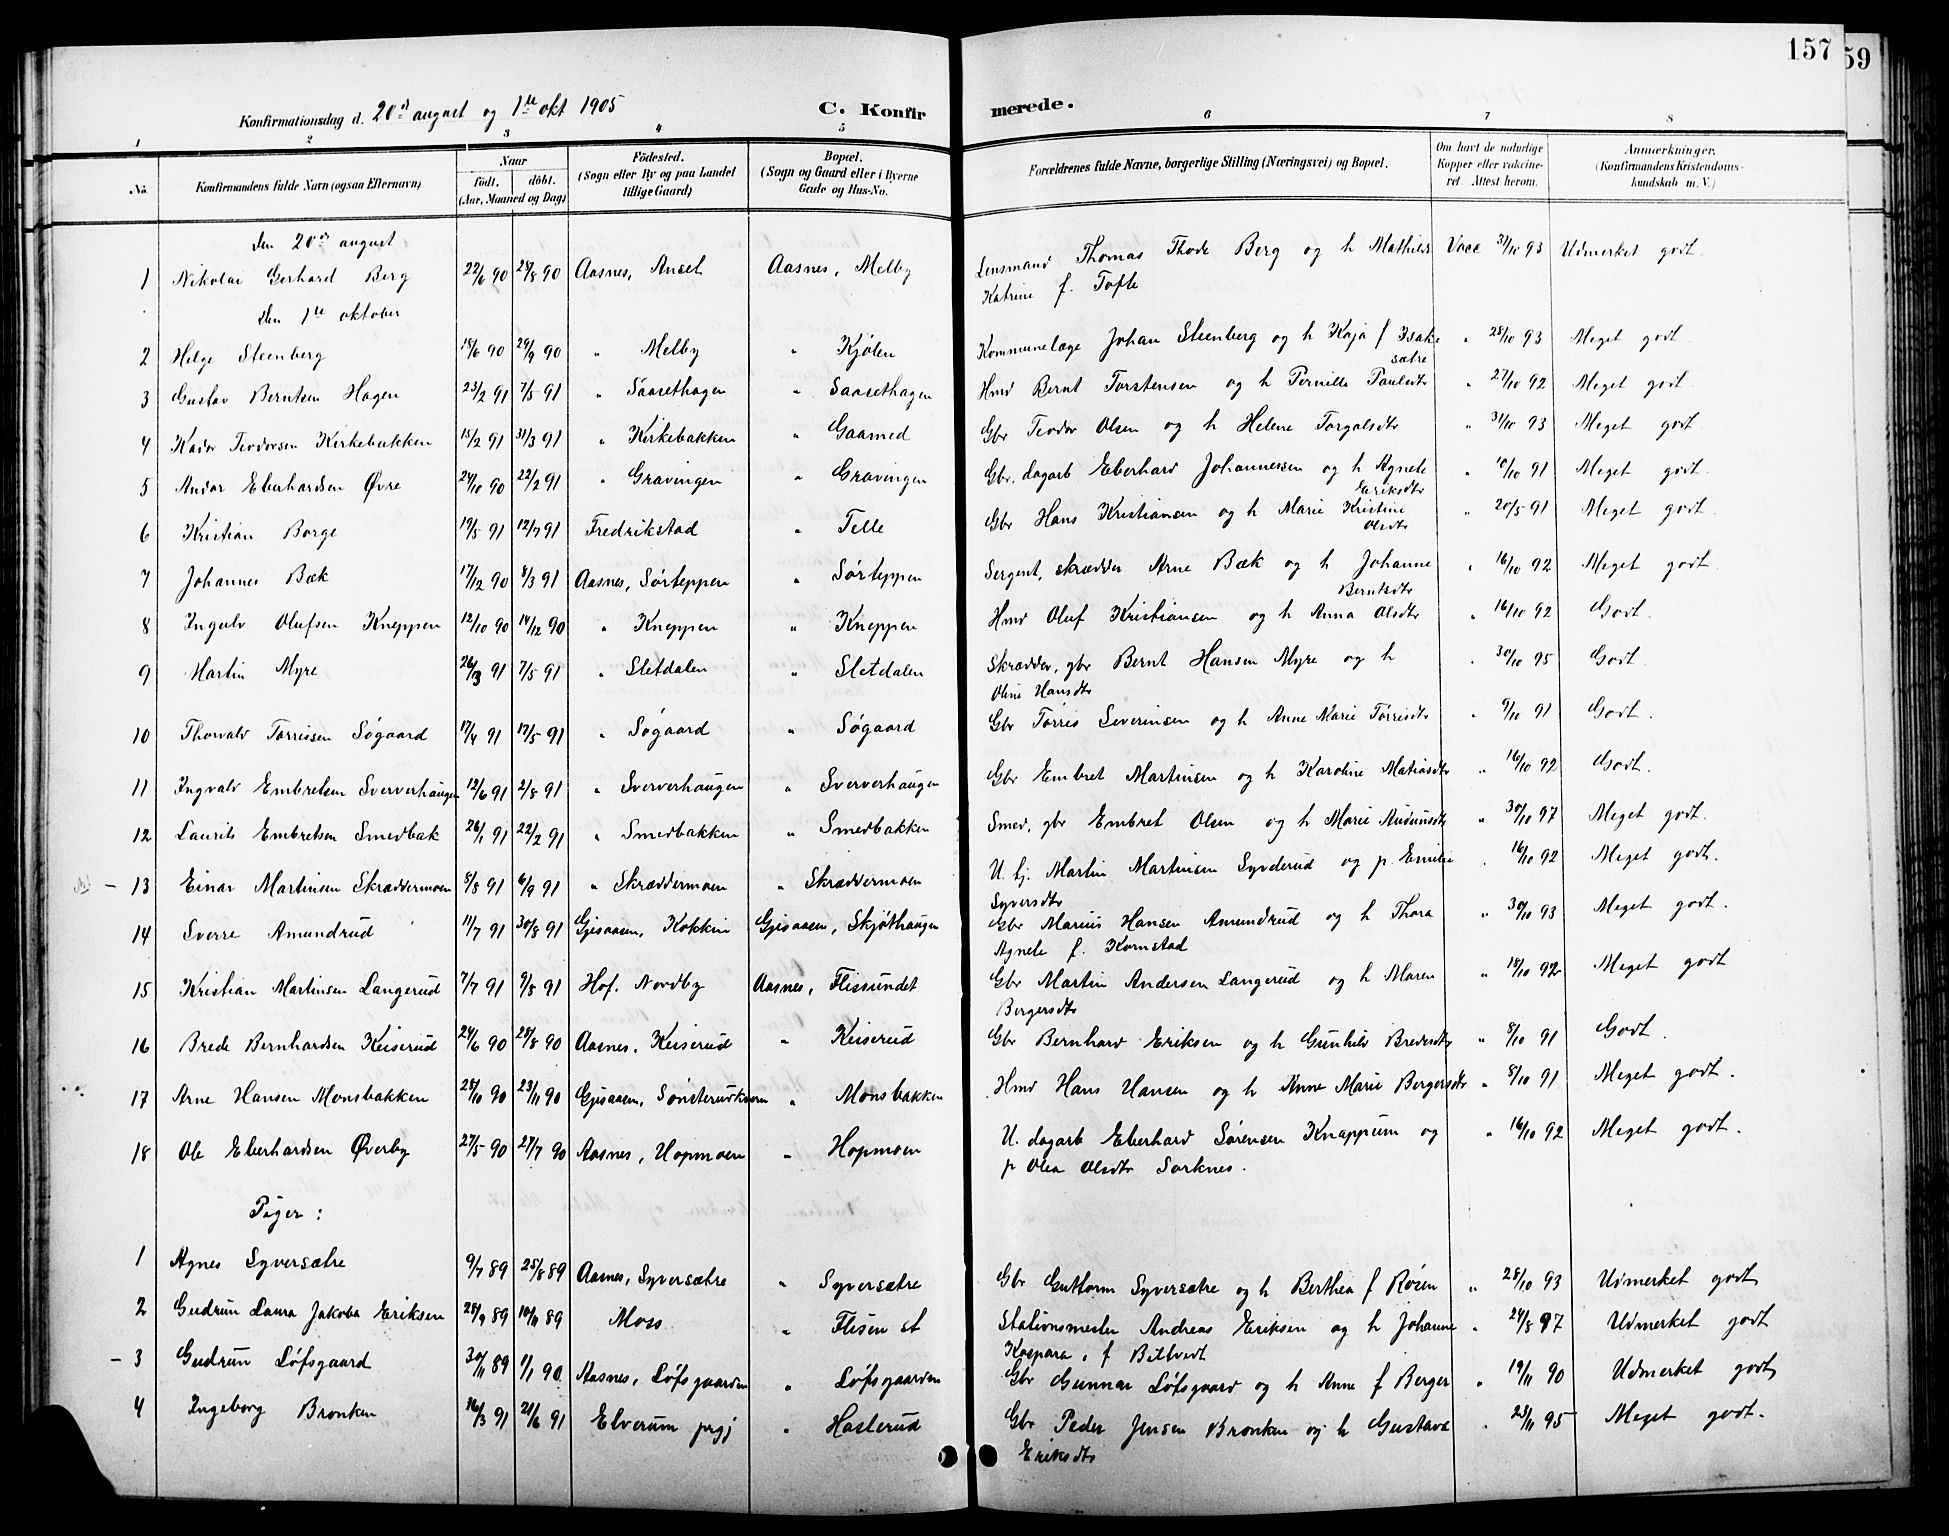 157
59
Konfirmationsdag d. 20de august og 1ste okt 1905
C. Konfirmerede.
1 2 3 4 5 6 7 8
No.
Konfirmandens fulde Navn (ogsaa Efternavn)
Naar
födt. döbt.
(Aar, Maaned og Dag)
Födested.
(Sogn eller By og paa Landet
tillige Gaard)
Bopæl.
(Sogn og Gaard eller i Byerne
Gade og Hus-No.
Forældrenes fulde Navne, borgerlige Stilling (Næringsvei) og Bopæl.
Om havt de naturlige
Kopper eller vakcine-
ret. Attest herom.
Anmærkninger.
(Konfirmandens Kristendoms-
kundskab m. V.)
den 20de august
1 Nikolai Gerhard Berg 22/6 90 24/8 90 Aasnes, Anset Aasnes, Melby Lensmand Thomas Thode Berg og h Mathilde Vacc 31/10 93 Udmerket godt.
Katrine f. Tofte
den 1ste oktober
2 Helge Steenberg 18/6 90 29/9 90 " Melby " Kjölen Kommunelæge Johan Steenberg og h Kaja f Isak- " 28/10 93 Meget godt.
sætre
3 Gustav Berntsen Hagen 23/2 91 7/5 91 " Saasethagen " Saasethagen Hmd Bernt Torstensen og h Pernille Paulsdtr " 27/10 92 Meget godt.
4 Kador Teodorsen Kirkebakken 15/2 91 31/3 91 " Kirkebakken " Gaamed Gbr Teodor Olsen og h Helene Torgalsdtr " 31/10 93 Meget godt.
5 Andor Eberhardsen Øvre 24/10 90 22/2 91 " Gravingen " Gravingen Gbr. dagarb Eberhard Johannessen og h Agnete " 10/10 91 Meget godt.
Eriksdtr
6 Kristian Borge 19/5 91 12/7 91 Fredrikstad " Telle Gbr Hans Kristiansen og h Marie Kristine " 20/5 91 Meget godt.
Olsdtr
7 Johannes Bæk 17/12 90 8/3 91 Aasnes, Sörteppen " Sörteppen Sergent, skrædder Arne Bæk og h Johanne " 16/10 92 Meget godt.
Berntsdtr
8 Ingulv Olufsen Kneppen 12/10 90 14/12 90 " Kneppen " Kneppen Hmd Oluf Kristiansen og h Anna Olsdtr " 16/10 92 Godt.
9 Martin Myre 26/3 91 7/5 91 " Sletdalen " Sletdalen Skrædder, gbr Bernt Hansen Myre og h " 30/10 95 Godt.
Oline Hansdtr
10 Thorvald Törrissen Søgaard 17/4 91 17/5 91 " Søgaard " Søgaard Gbr Törris Severinsen og h Anne Marie Törrisdtr " 9/10 91 Godt.
11 Ingvald Embretsen Sververhaugen 12/6 91 2/8 91 " Sververhaugen " Sververhaugen Gbr Embret Martinsen og h Karoline Matiasdtr " 16/10 92 Godt.
12 Laurits Embretsen Smedbak 26/1 91 22/2 91 " Smedbakken " Smedbakken Smed, gbr Embret Olsen og h Marie Audunsdtr " 30/10 97 Meget godt.
- 13 Einar Martinsen Skræddermoen 8/8 91 6/9 91 " Skræddermoen " Skræddermoen U. tj. Martin Martinsen Synderud og p. Emilie " 16/10 92 Meget godt.
Syversdtr
14 Sverre Amundrud 11/7 91 30/8 91 Gjesaasen, Kokkin Gjesaasen, Skjøthaugen Gbr Marius Hansen Amundrud og h Thora " 30/10 93 Meget godt.
Agnete f. Kornstad
15 Kristian Martinsen Langerud 7/7 91 9/8 91 Hof. Nordby Aasnes, Flissundet Gbr Martin Andersen Langerud og h Maren " 18/10 92 Meget godt
Bergersdtr
16 Brede Bernhardsen Keiserud 24/6 90 28/8 90 Aasnes, Keiserud " Keiserud Gbr Bernhard Eriksen og h Gunhild Bredesdtr " 8/10 91 Godt.
17 Arne Hansen Monsbakken 28/10 90 23/11 90 Gjesaasen, Sönsterudkvern " Monsbakken Hmd Hans Hansen og h Anne Marie Bergersdtr " 8/10 91 Meget godt.
18 Ole Eberhardsen Øverby 27/5 90 27/7 90 Aasnes, Hopmoen " Hopmoen U. dagarb Eberhard Sørensen Knappum og " 16/10 92 Meget godt.
p Olea Olsdtr Sorknes.
Piger:
1 Agnes Syversætre 9/7 89 25/8 89 Aasnes, Syversætre " Syversætre Gbr Guttorm Syversætre og h Berthea f Rösen " 28/10 93 Udmerket godt
2 Gudrun Laura Jakoba Eriksen 28/9 89 10/11 89 Moss " Flisen st Stationsmester Andreas Eriksen og h Johanne " 24/8 97 Udmerket godt
Kaspara, f Biltvedt
- 3 Gudrun Löfsgaard 30/11 89 1/1 90 Aasnes, Löfsgaarden " Löfsgaarden Gbr Gunnar Löfsgaard og h Anne f Berger " 19/11 90 Udmerket godt
4 Ingeborg Bronken 16/3 91 21/6 91 Elverum prgj " Hasterud Gbr Peder Jensen Bronken og h Gustava " 23/11 95 Meget godt.
Eriksdtr